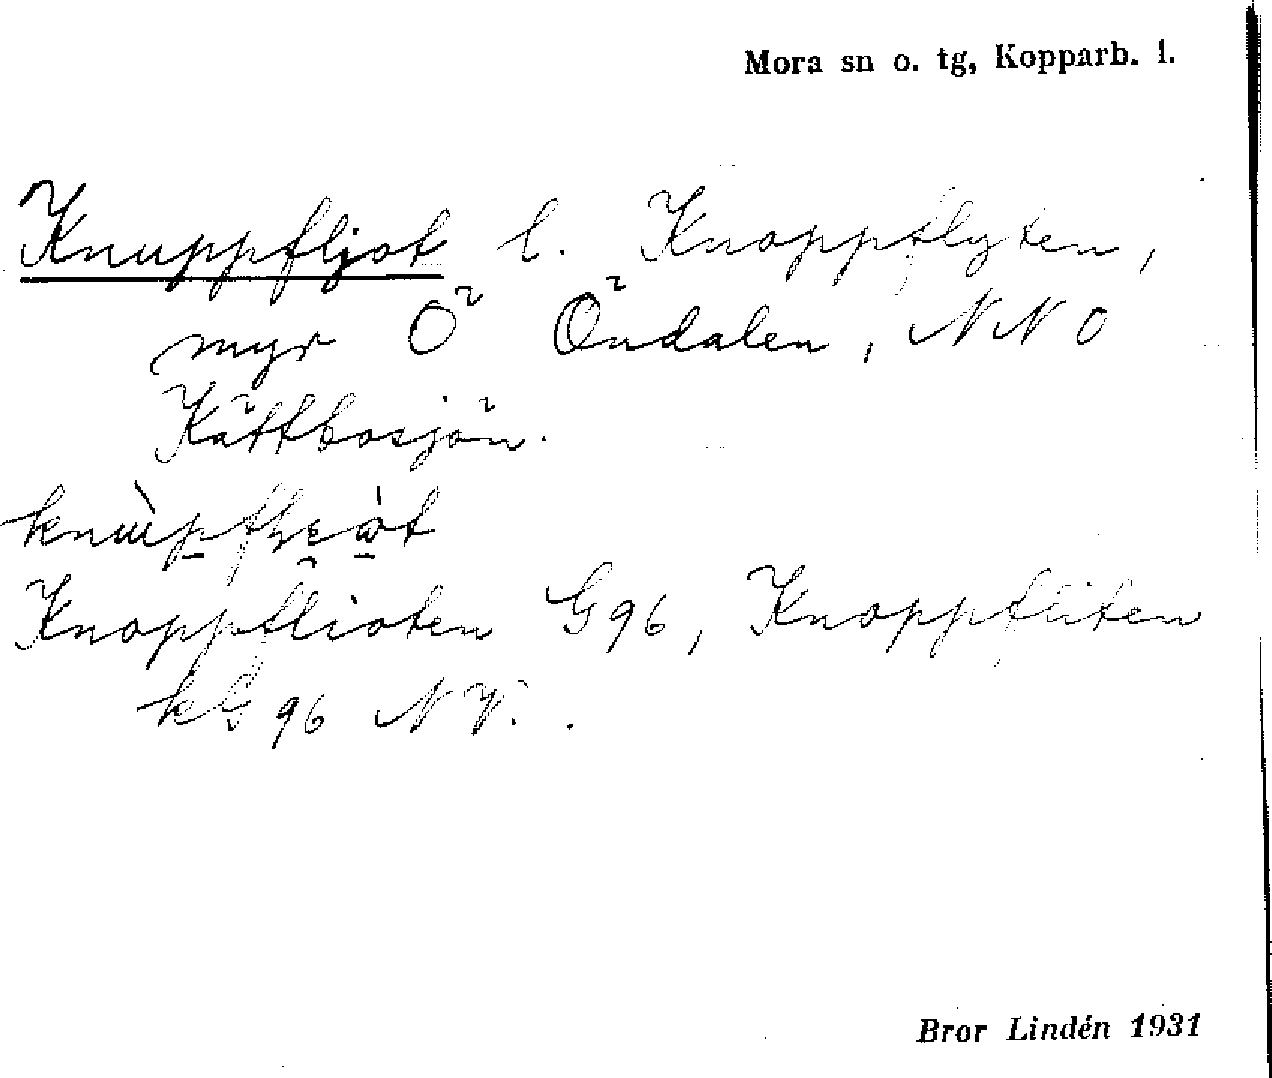 Mora sn o. tg, Kopparb. l.
Knuppfljot l. Knoppflyten,
myr Ö Öndalen, NNO
Kättbosjön.
Knoppflioten G96, Knoppfliten
kG 96 NV.
Bror Lindén 1931